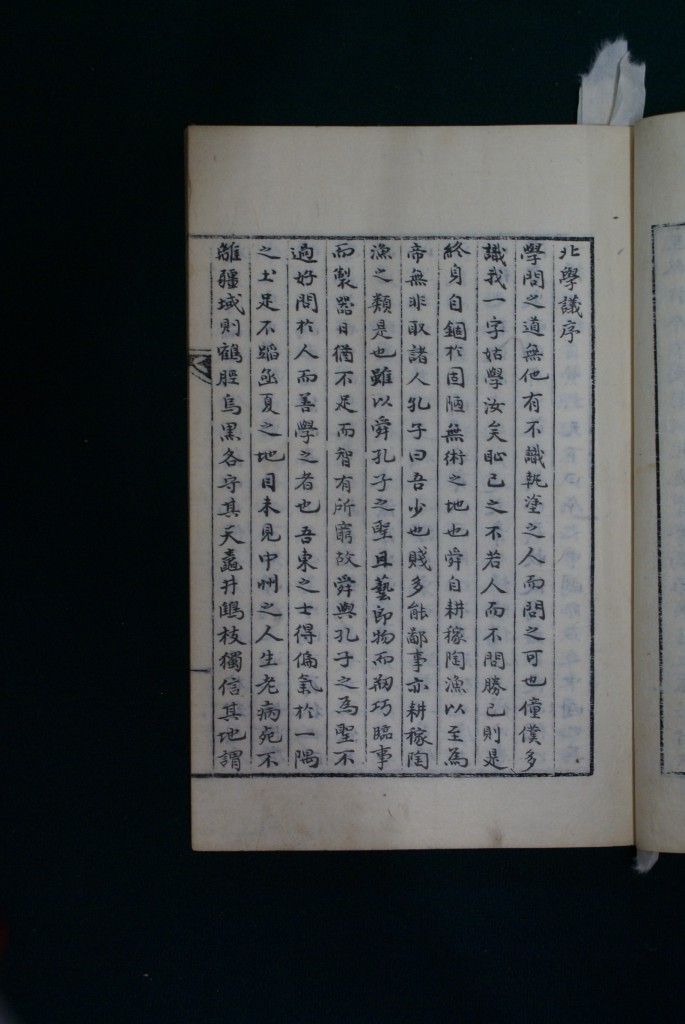 北學議序
學問之道無他有不識執塗之人而問之可也僮僕多
識我一字姑學汝矣恥已之不若人而不問勝已則是
終身自錮於固陋無術之地也舜自耕稼陶漁以至為
帝無非取諸人孔子曰吾少也賤多能鄙事亦耕稼陶
漁之類是也雖以舜孔子之聖且藝卽物而刱巧臨事
而製器日猶不足而智有所窮故舜與孔子之為聖不
過好問於人而善學之者也吾東之士得偏氣於一隅
之土足不蹈凾夏之地目未見中州之人生老病死不
離疆域則鶴脛烏黑各守其天蠡井鷦枝獨信其地謂